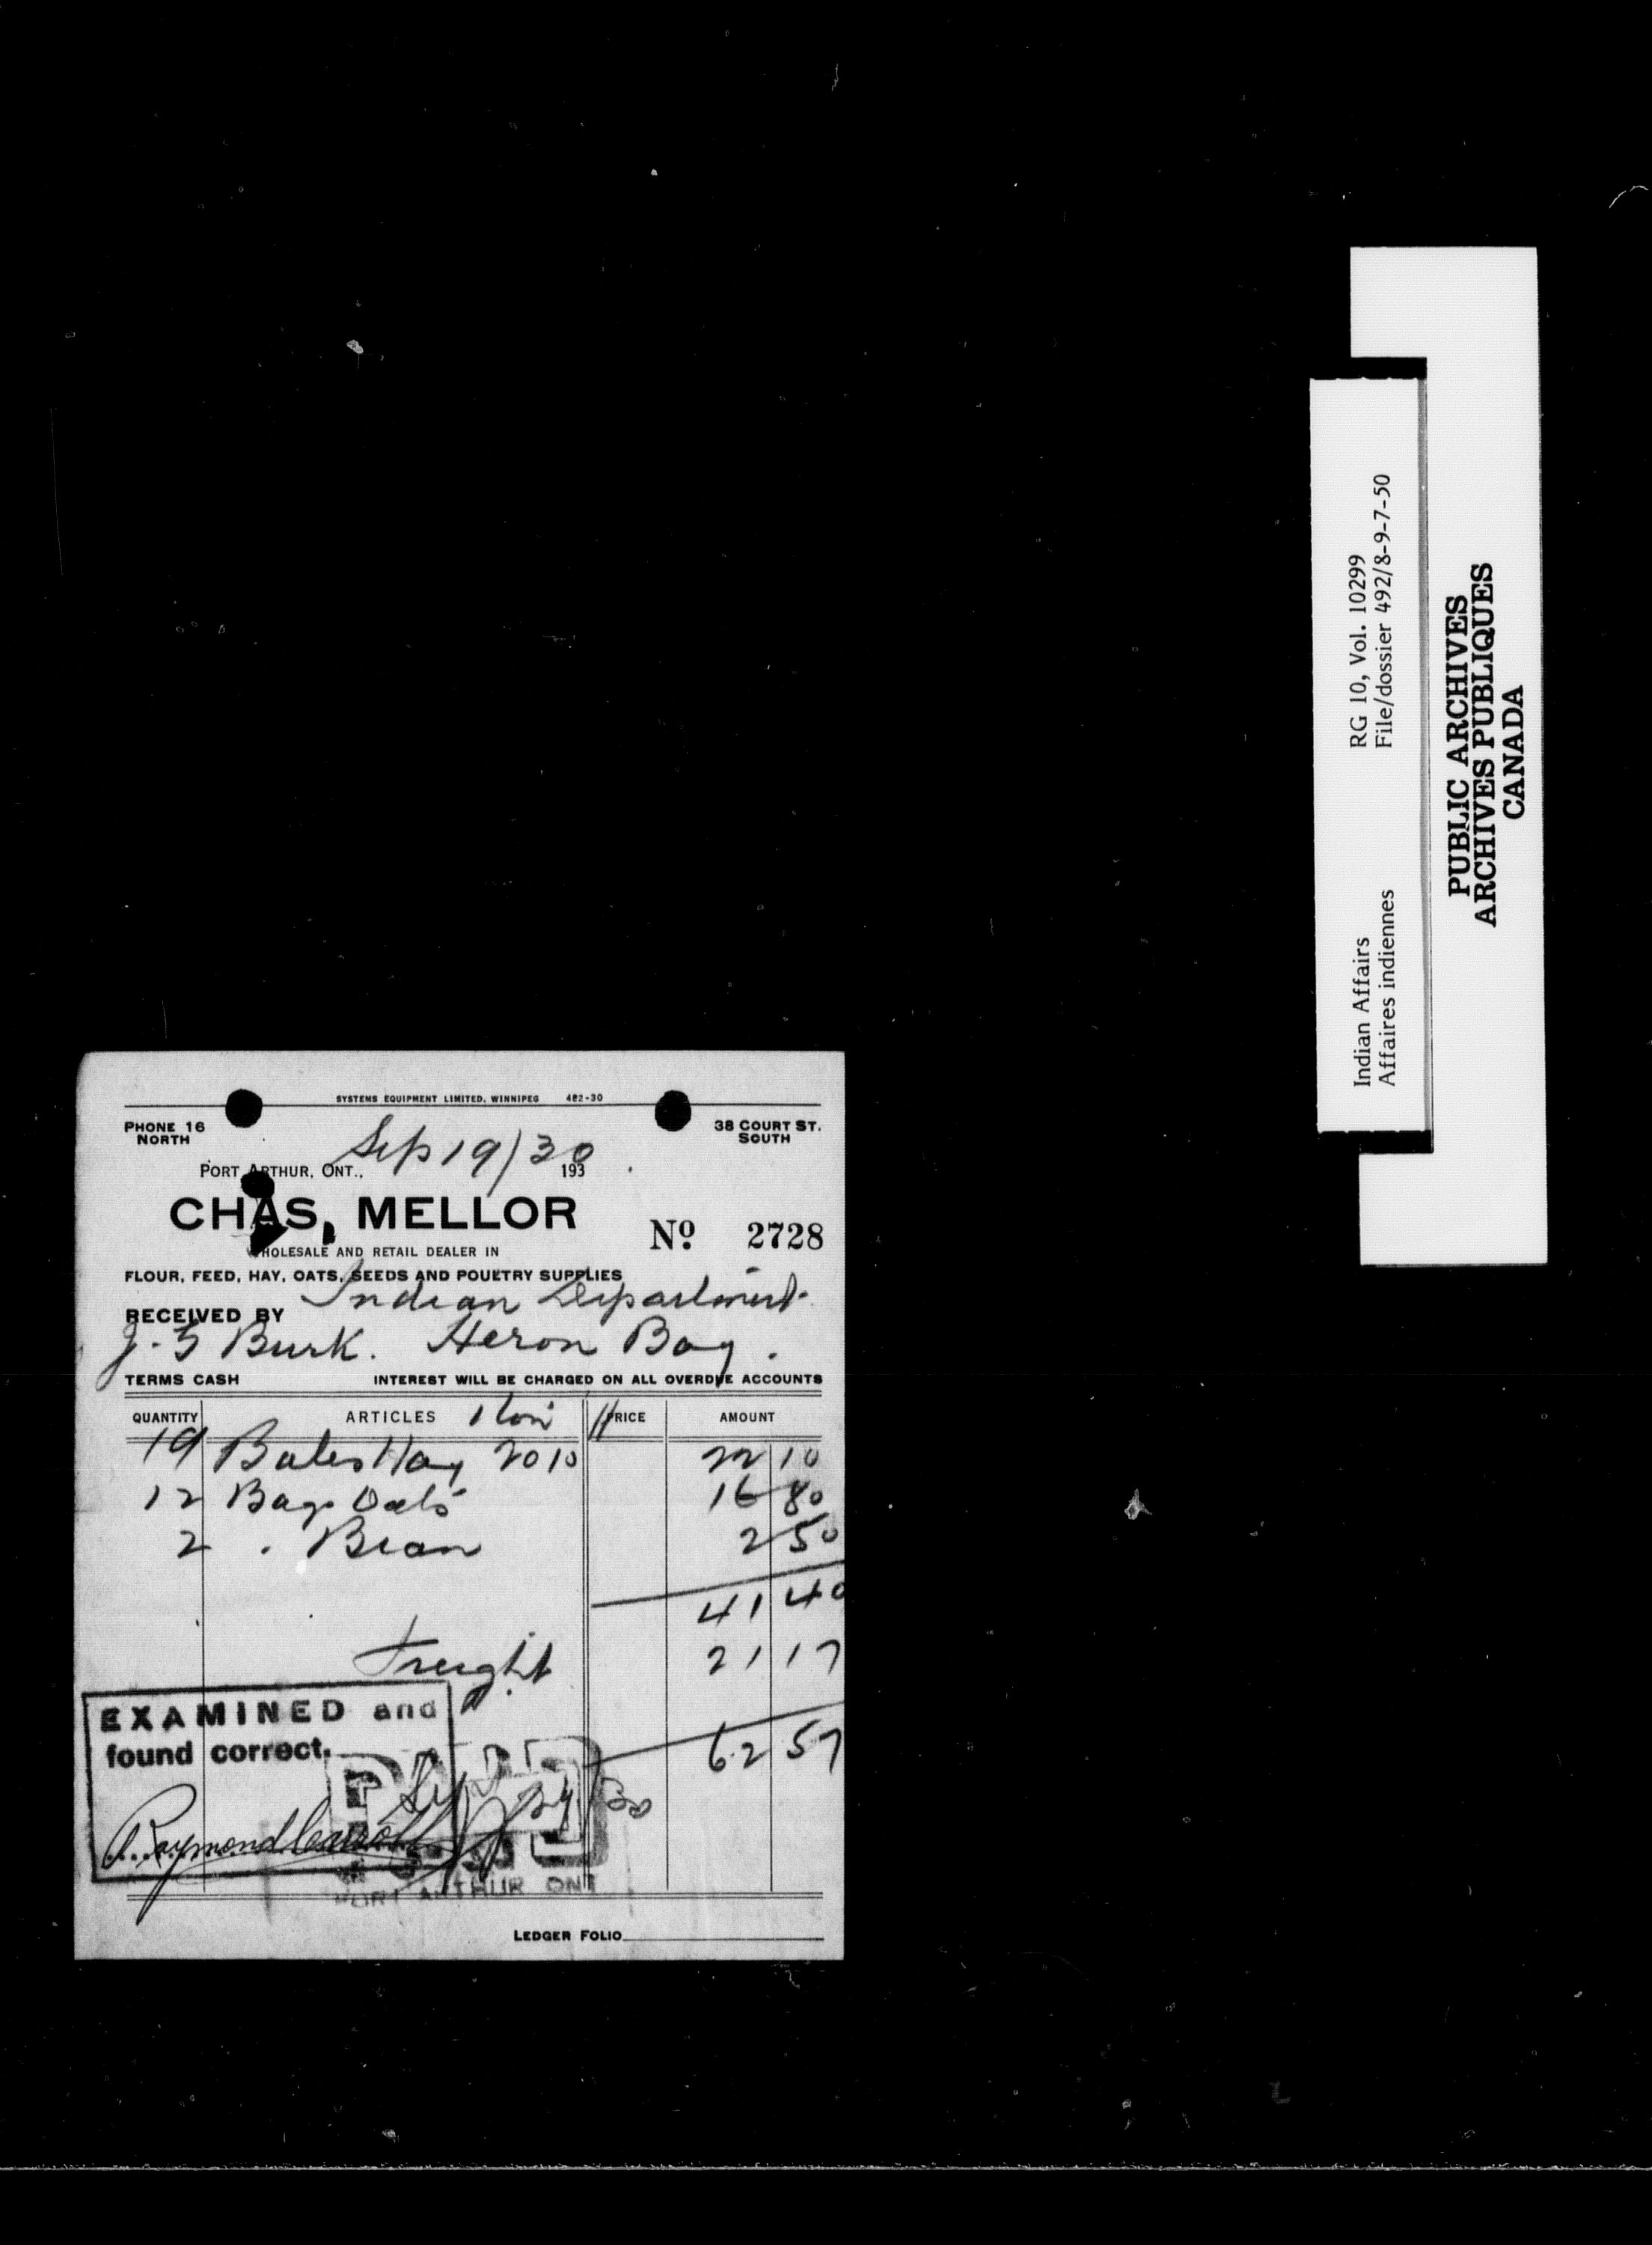 SYSTEMS EQUIPMENT LIMITED, WINNIPEG 482-30
PHONE 16 NORTH
38 COURT ST. SOUTH
Sep 19/30
PORT ARTHUR, ONT., 193
CHAS. MELLOR
Nº 2728
WHOLESALE AND RETAIL DEALER IN
FLOUR, FEED, HAY, OATS, SEEDS AND POULTRY SUPPLIES
RECEIVED BY Indian Department
J. G Burk. Heron Bay.
TERMS CASH INTEREST WILL BE CHARGED ON ALL OVERDUE ACCOUNTS
QUANTITY ARTICLES 1 Ton 11 PRICE AMOUNT
19 Bales Hay 2010 22 10
12 Bags Oats 16 80
2 . Bran 2 50
41 40
Freight 21 17
62 57
EXAMINED and
found correct.
PAID
PORT ARTHUR ONT
LEDGER FOLIO
Indian Affairs RG 10, Vol. 10299
Affaires indiennes File/dossier 492/8-9-7-50
PUBLIC ARCHIVES
ARCHIVES PUBLIQUES
CANADA